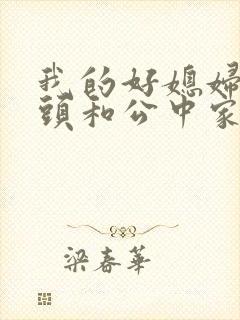 我的好媳婦
頭和公中家
梁春華